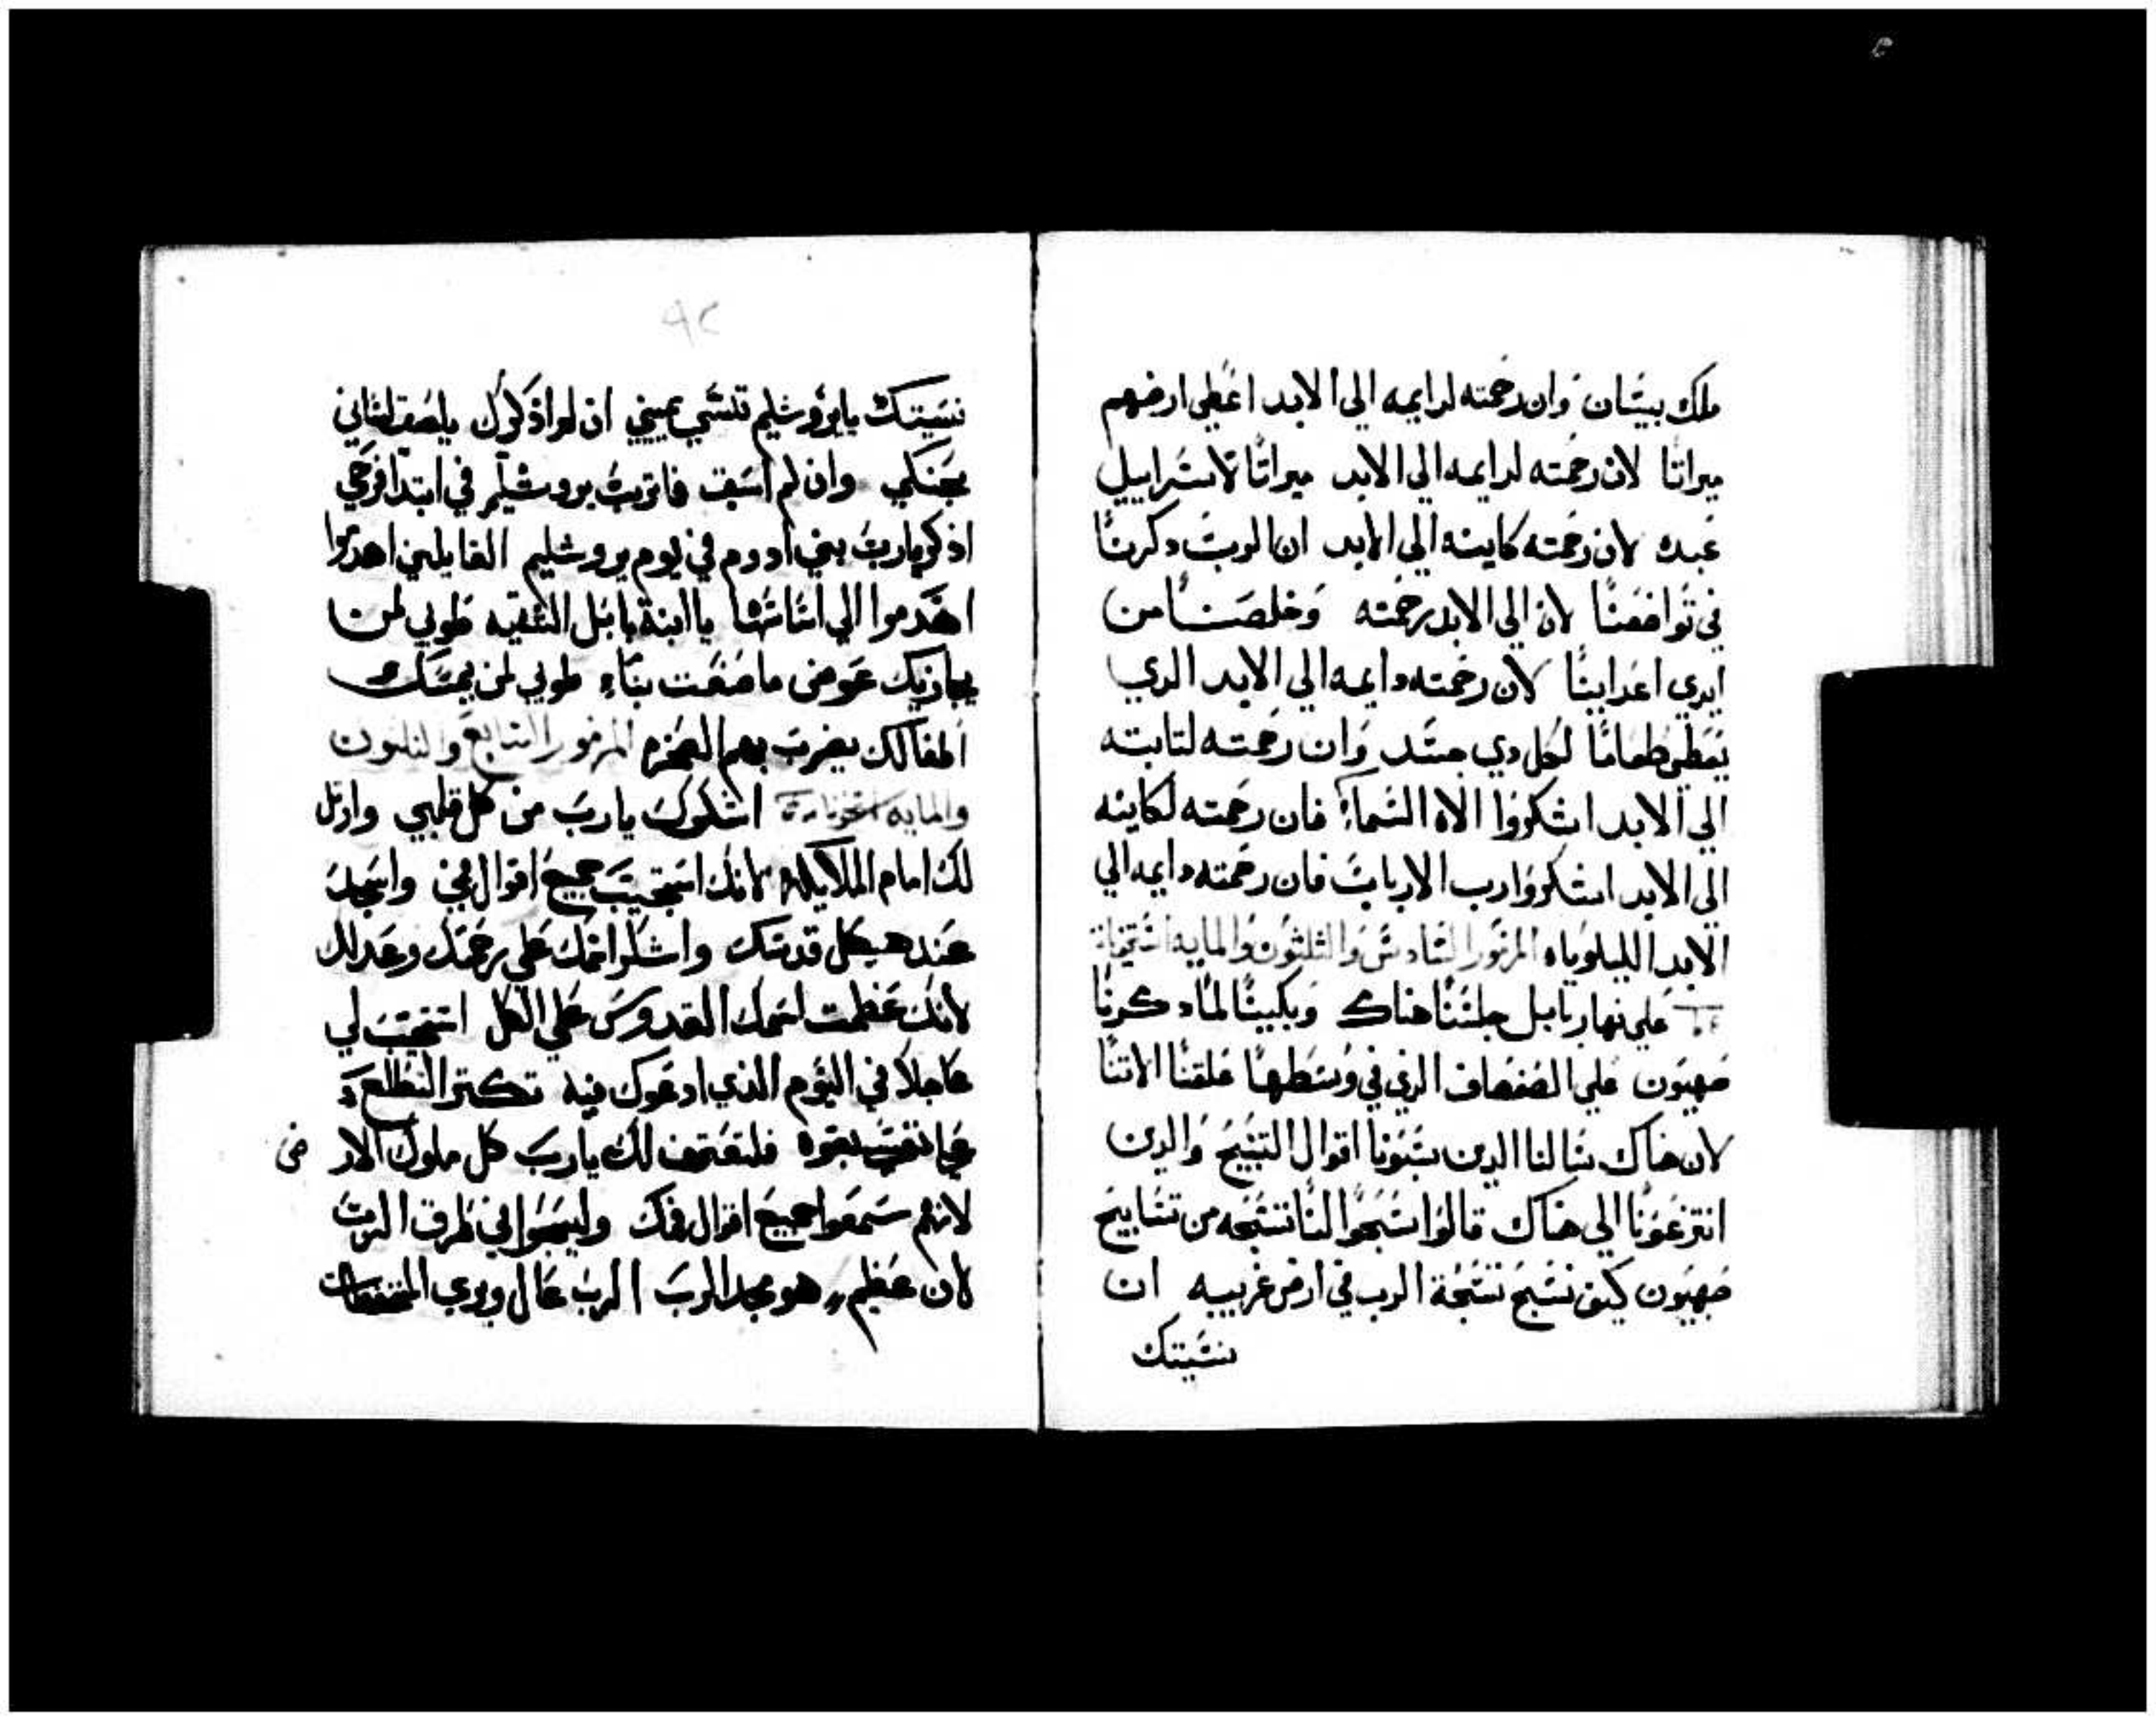 ملك بيسان وان رحمته لدايمه الي الابد اعطي ارضهم
ميراثا لان رحمته لدايمه الي الابد ميراثا لاسراييل
عبده لان رحمته كاينه الي الابد ان الرب دكرنا
في تواضعنا لان الي الابد رحمته وخلصنا من
ايدي اعداينا لان رحمته دايمه الي الابد الدي
يعطي طعاما لكل دي جسد وان رحمته لتابته
الي الابد اشكروا الاه السماء فان رحمته لكاينه
الي الابد اشكروا رب الارباب فان رحمته دايمه الي
الابد الليلوياه المزمور السادس والثلثون والمايه
علي نهار بابل جلسنا هناك وبكينا لما دكرنا
صهيون علي الصفصاف الذي في وسطها علقنا الاتنا
لان هناك سالنا الدين سبونا اقوال التسبيح والدين
انتزعونا الي هناك قالوا سبحوا لنا تسبحه من تسابيح
صهيون كيف نسبح تسبحة الرب في ارض غريبيه ان
نسيتك
٩٢
نسيتك يا يروشليم تنسي يميني ان لم اذكرك يلصق لساني
بحنكي وان لم اسبق فارتب يروشليم في ابتدا فرحي
اذكر يارب بني ادوم في يوم يروشليم القايلين اهدموا
اهدموا الي اساساتها يا ابنة بابل الشقيه طوبي لمن
يجازيك عوض ما صنعت بنا طوبي لمن يمسك
اطفالك يضرب بهم الصخره المزمور السابع والثلثون
والمايه اشكرك يارب من كل قلبي وارتل
لك امام الملايكه لانك استجيبت جميع اقوال في واسجد
عند هيكل قدسك واشكر اسمك علي رحمتك وعدلك
لانك عظمت اسمك القدوس علي الكل استجيب لي
عاجلا في اليوم الذي ادعوك فيه تكتر التطلع
بقوه فلتعترف لك يارب كل ملوك الار ض
لانهم سمعوا جميع اقوال فمك وليسبحوا في طرق الرب
لان عظيم هو مجد الرب الرب عال ويري المتضعات